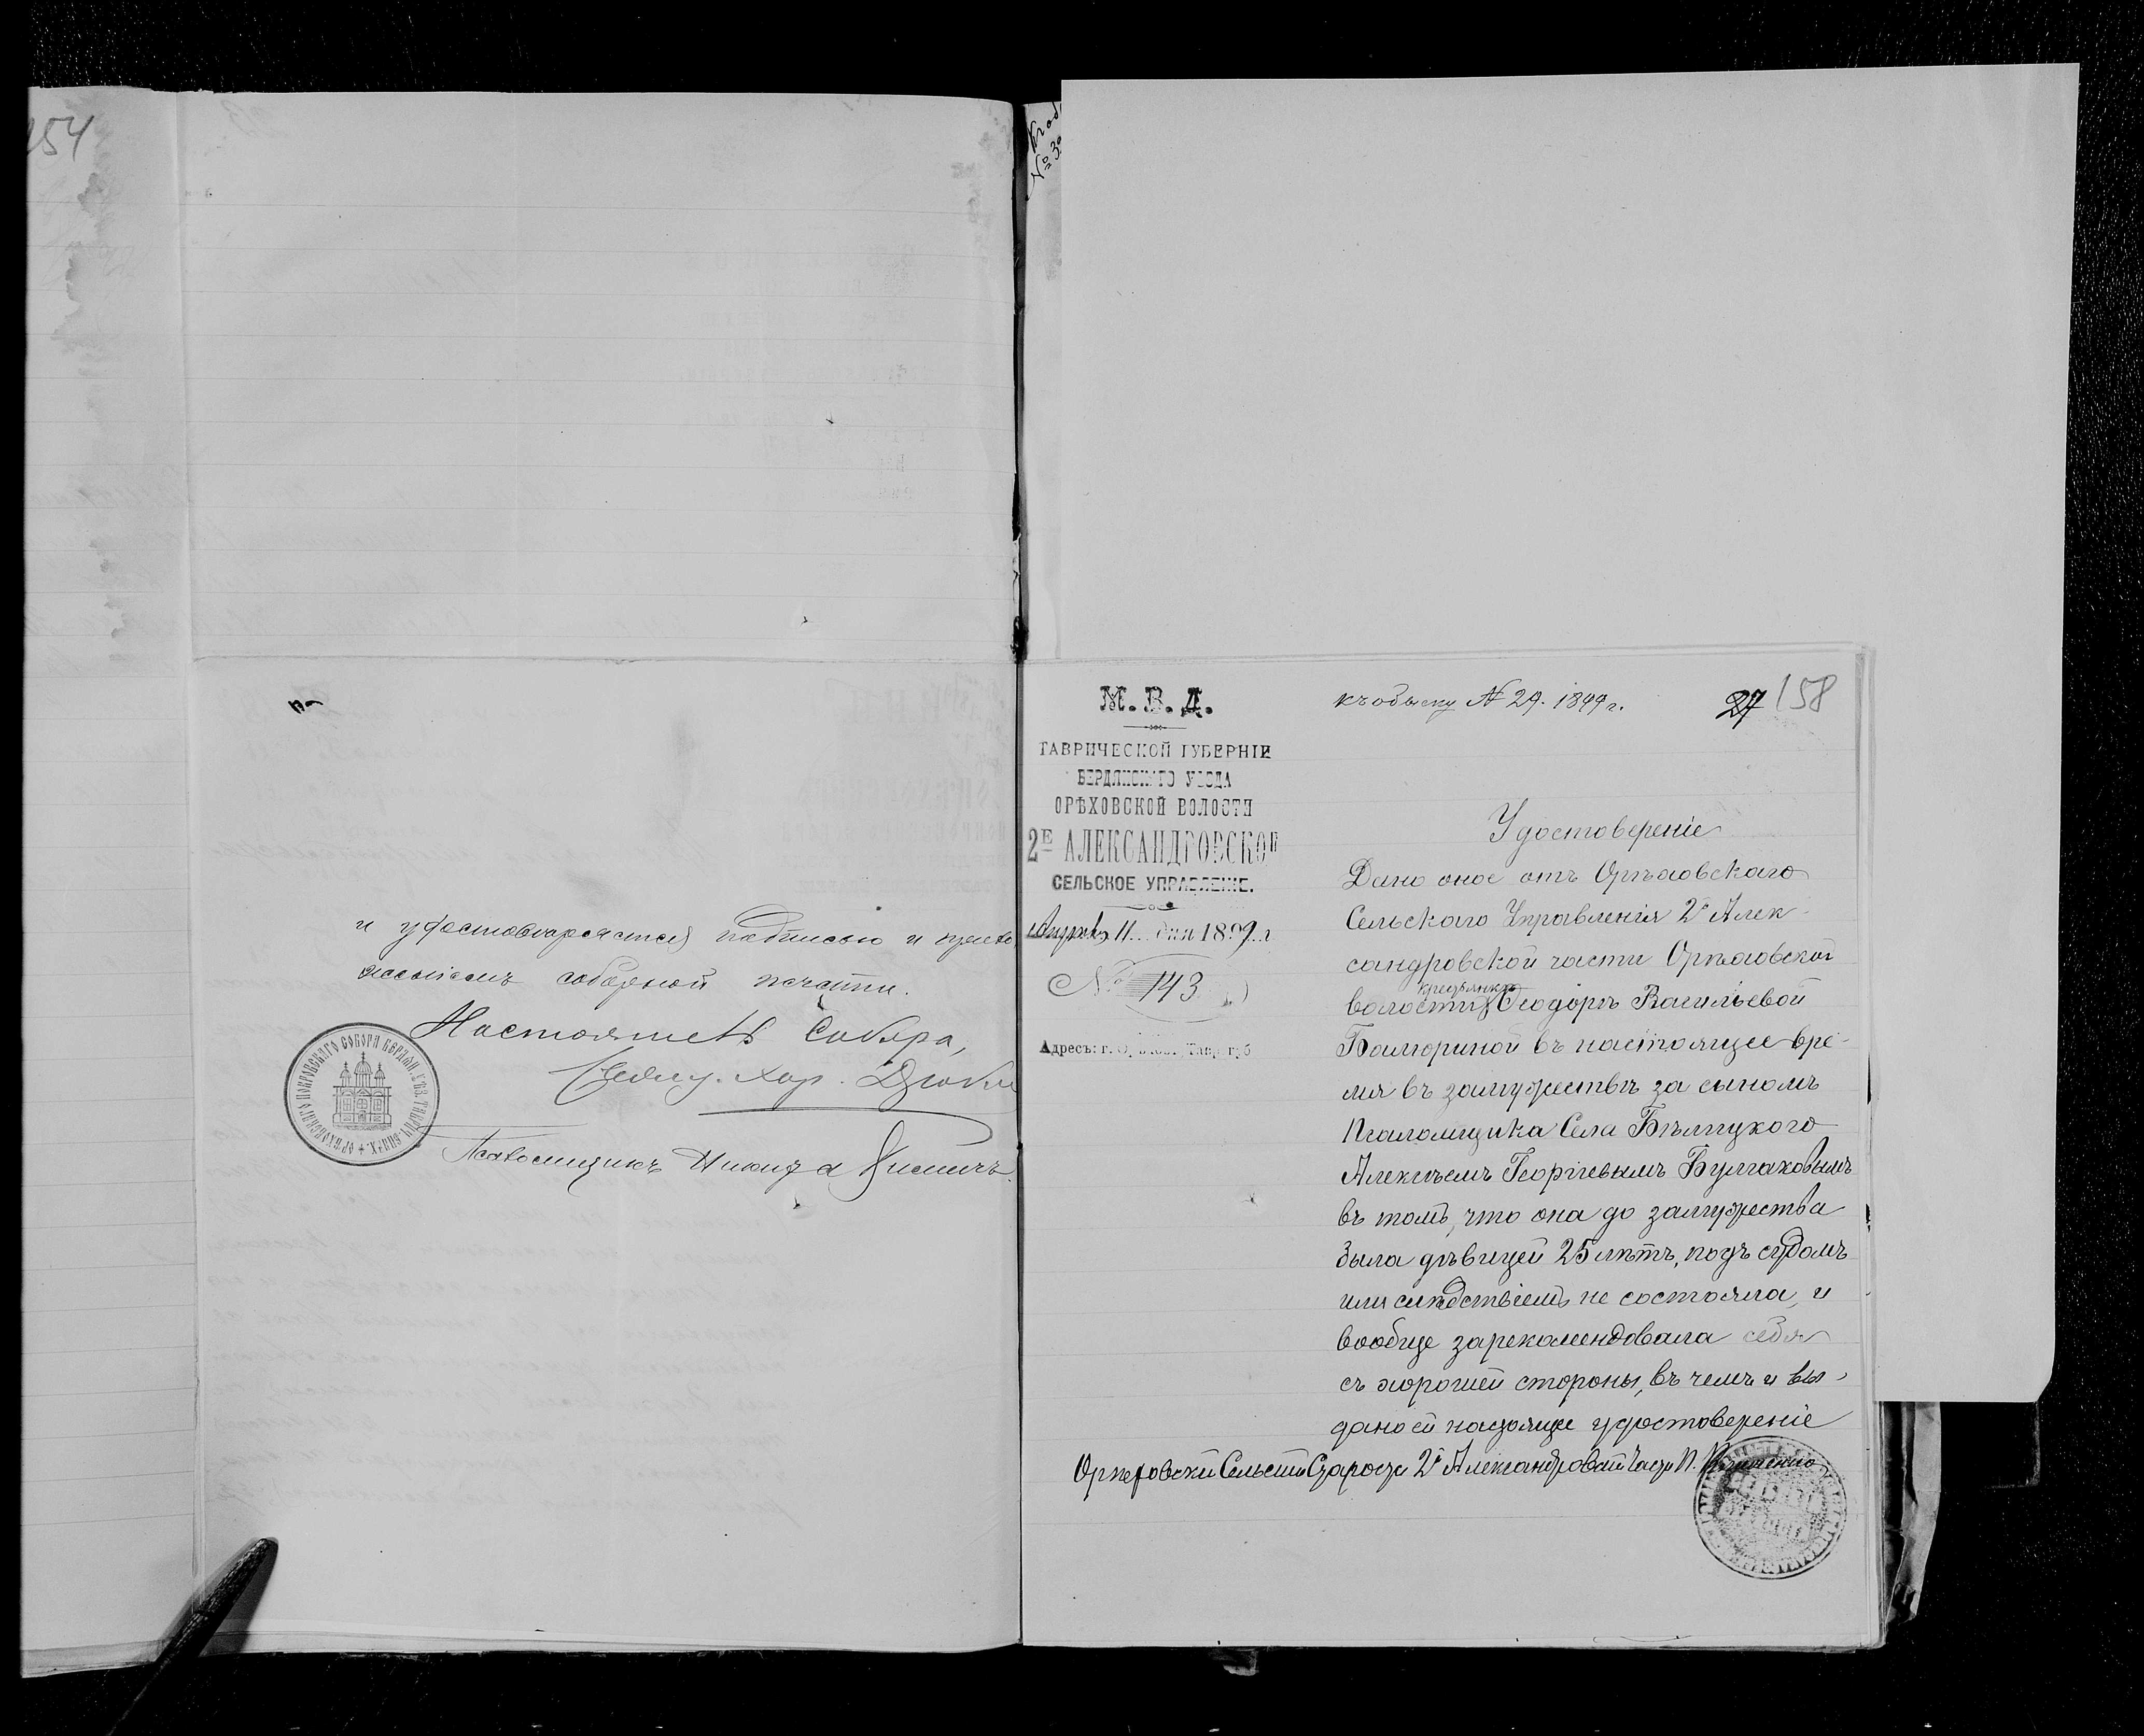 154
и удостоверяется подписью и прило
женіемъ соборной печати.
Настоятель Собора,
Свящ. Хар. Дзюба
Псаломщикъ Никита
№ 3
М. В. Д.
ТАВРИЧЕСКОЙ ГУБЕРНІИ
БЕРДЯНСКАГО УѢЗДА
ОРѢХОВСКОЙ ВОЛОСТИ
2Е АЛЕКСАНДРОВСКОЕ
СЕЛЬСКОЕ УПРАВЛЕНІЕ.
11 дня 1899 г
№ 143
Адресъ: г. Орѣховъ, Тавр. губ
къ обыску № 29. 1899 г.
27 158
Удостовереніе
Дано оное отъ Орѣховскаго
Сельскаго Управленія 2й Алек-
сандровской части Орѣховской
крестьянкѣ
волости Ѳеодорѣ Васильевой
въ настоящее вре-
мя въ замужествѣ за сыномъ
Псаломщика Села Бѣлицкого
Алексѣемъ Георгіевымъ Булгаковымъ
въ томъ, что она до замужества
была дѣвицей 25 лѣтъ, подъ судомъ
или слѣдствіемъ не состояла, и
вообще зарекомендовала себя
съ хорошей стороны, въ чемъ и вы-
дано ей настоящее удостовереніе
Орѣховски Сельски Староста 2й Александровской части П.